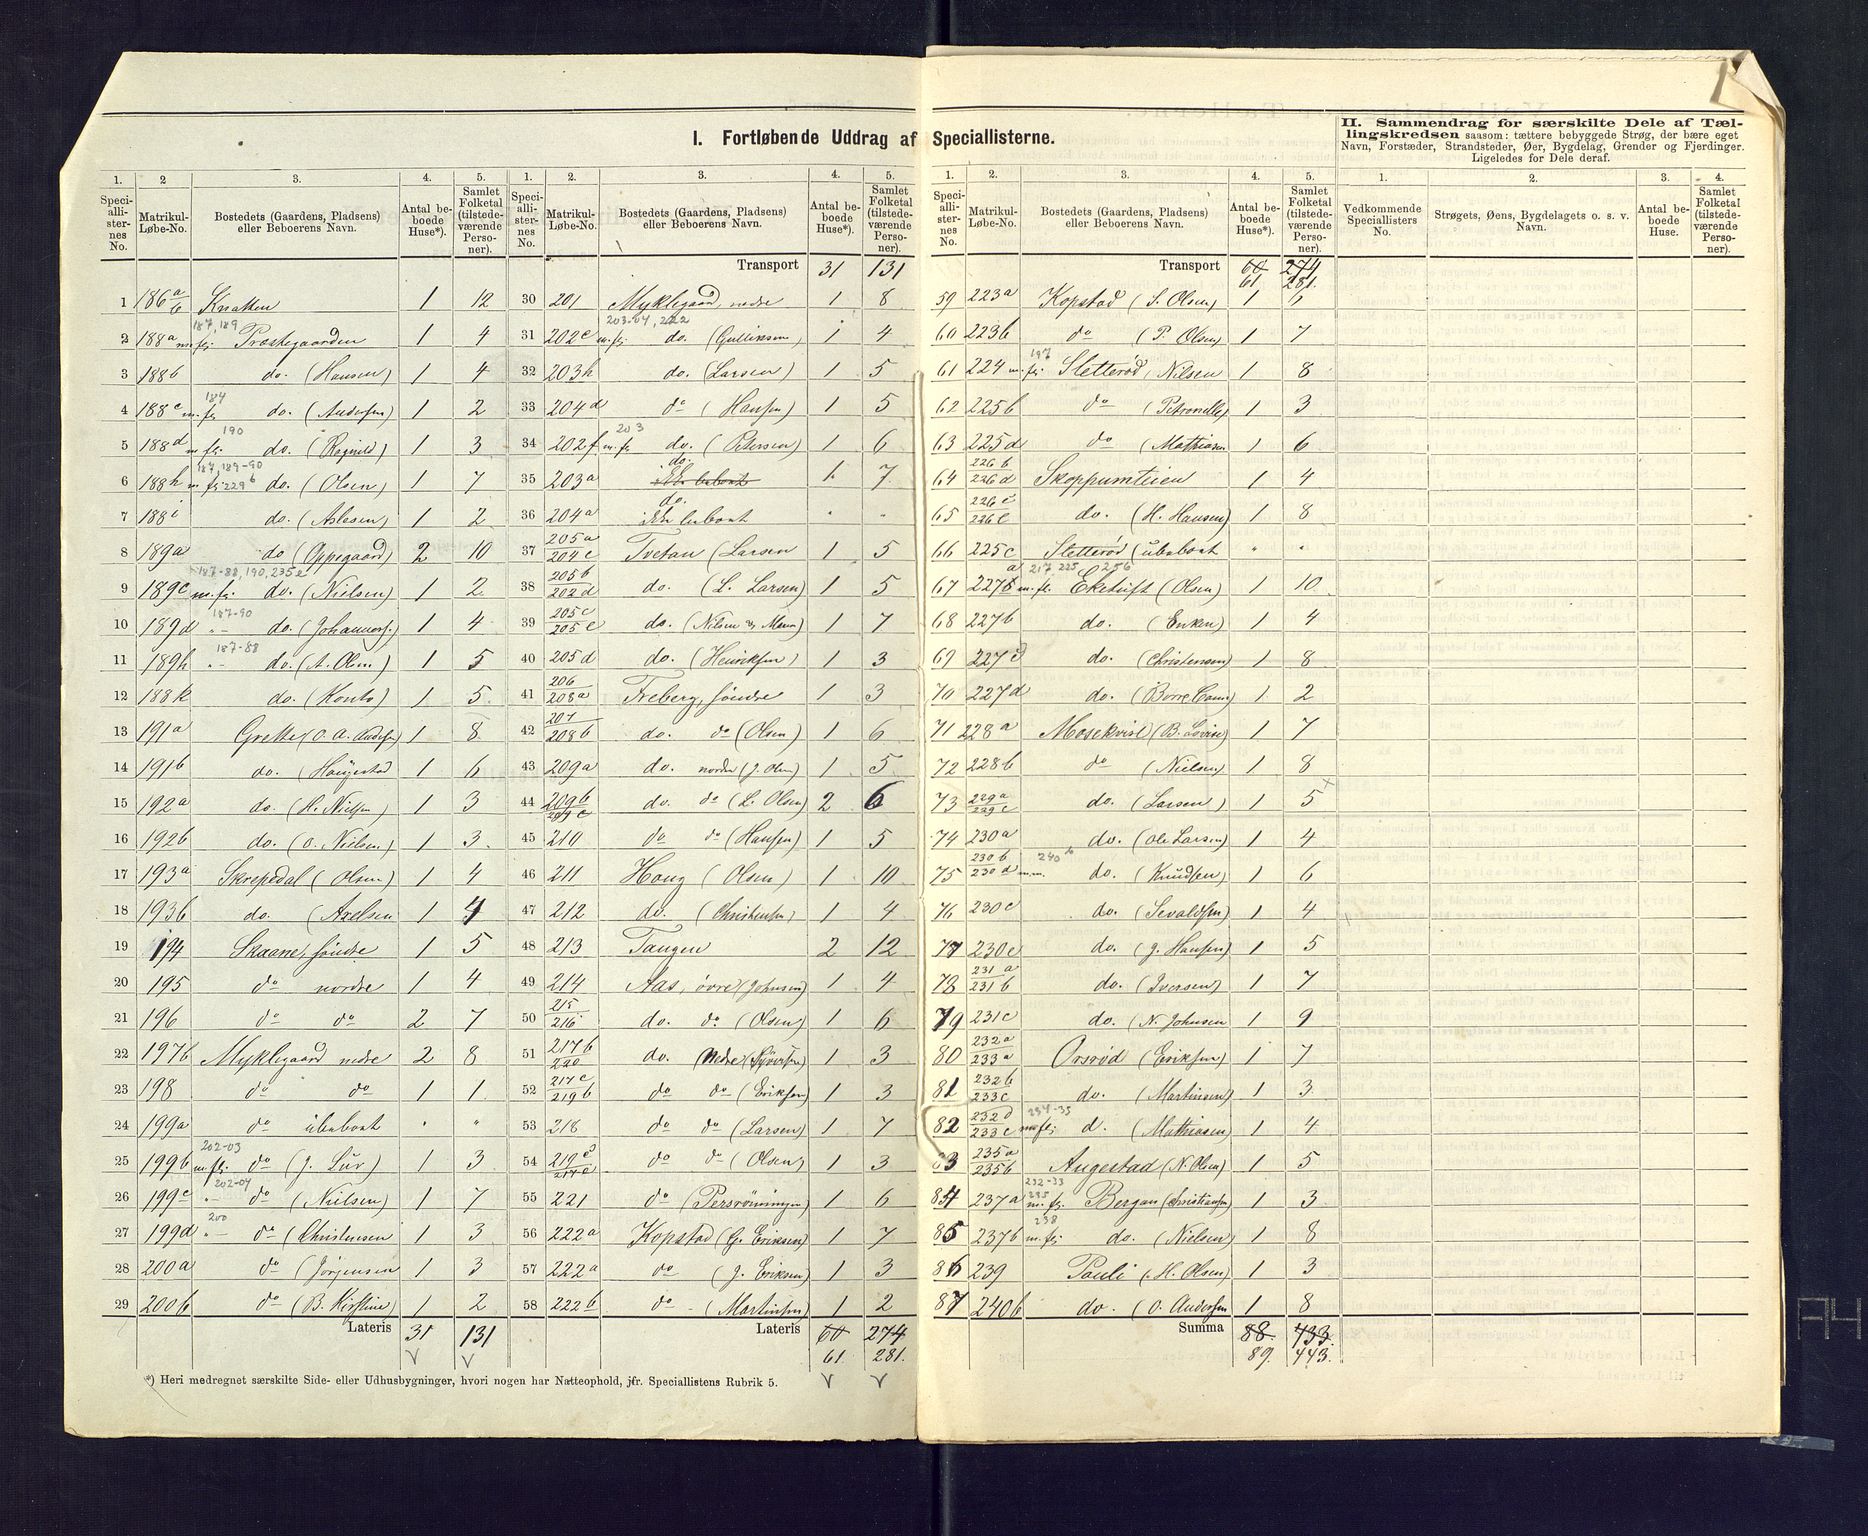 I. Fortløbende Uddrag af Speciallisterne.
1. 2 3. 4. 5.
Speciallisternes No. Matrikul-Løbe-No. Bostedets (Gaardens, Pladsens) eller Beboerens Navn. Antal beboede Huse*). Samlet Folketal (tilstedeværende Personer).
1 186 a/b Knatten 1 12
2 188a m.fl. 187, 189 Præstegaarden 1 4
3 188b do. (Hansen) 1 4
4 188c m.fl. 184 do. (Andersen) 1 2
5 188d m.fl. 190 do. (Ragnild) 1 3
6 188h m.fl. 187, 189-90 229b do. (Olsen) 1 7
7 188i do. (Aslesen) 1 2
8 189a do (Oppegaard) 2 10
9 189c m.fl. 187-88, 190, 235e do. (Nielsen) 1 2
10 189d -"- 187-90 do. (Johannes.) 1 4
11 189h -"- 187-88 do. (A. Olsen) 1 5
12 188k do. (Honto) 1 5
13 191a Grette (O. A. Andersen) 1 8
14 191b do. (Haugestad 1 6
15 192a do. (H. Nielsen) 1 3
16 192b do. (O. Nielsen) 1 3
17 193a Skrepedal (Olsen) 1 4
18 193b do. (Axelsen 1 4
19 194 Skaane, søndre 1 5
20 195 do nordre 1 4
21 196 do do 2 7
22 197b Myklegaard nedre 2 8
23 198 do do 1 1
24 199a do ubeboet " "
25 199b m.fl. 202-03 do (J. Lür) 1 3
26 199c -"- 202-04 do (Nielsen) 1 7
27 199d -"- 200 do (Christensen 1 3
28 200a do (Jörgensen 1 3
29 200b do (B. Kirstine) 1 2
Lateris 31 131
*) Heri medregnet særskilte Side- eller Udhusbygninger, hvori nogen har Natteophold, jfr. Speciallistens Rubrik 5.
1. 2. 3. 4. 5.
Speciallisternes No. Matrikul-Løbe-No. Bostedets (Gaardens, Pladsens) eller Beboerens Navn. Antal beboede Huse*). Samlet Folketal (tilstedeværende Personer).
Transport 31 131
30 201 Myklegaard, nedre 1 8
31 202c m.fl. 203-04, 222 do. (Gulliksen) 1 4
32 203h do. (Larsen) 1 5
33 204d do (Hansen) 1 5
34 202f m.fl. 203 do. (Petersen) 1 6
35 203a do. Ek beboet 1. 7
36 204a do. ikke beboet " "
37 205a/204c Tvetan (Larsen 1 5
38 205b/202d do. (L. Larsen) 1 5
39 205c/205e do. (Nilsen 1 7
40 205d do. (Henriksen) 1 3
41 206/208a Freberg, søndre 1 3
42 207/208b do. do (Olsen) 1 6
43 209a do. nordre (J. Olsen) 1 5
44 209b/209c do. do (L. Olsen) 2 6
45 210 do do (Hansen) 1 5
46 211 Haug (Olsen) 1 10
47 212 do. (Christensen) 1 4
48 213 Tangen 2 12
49 214 Aas, övre (Johnsen) 1 4
50 215/216 do. do. (Olsen) 1 6
51 217b/220 do. Nedre (Syversen) 1 3
52 217c/219b do do (Eriksen) 1 3
53 218 do do (Larsen) 1 7
54 219c/217c do do (Olsen) 1 3
55 221 do (Persröningen) 1 6
56 222a Kopstad (G. Eriksen) 1 7
57 222a do (J. Eriksen) 1 3
58 222b do (Martinsen) 1 2
Lateris 60 274
61. 281.
1. 2. 3. 4. 5.
Speciallisternes No. Matrikul-Løbe-No. Bostedets (Gaardens, Pladsens) eller Beboerens Navn. Antal beboede Huse*). Samlet Folketal (tilstedeværende Personer).
Transport 60 274
61 281.
59 223a Kopstad (S. Olsen) 1 6
60 223b do (P. Olsen) 1 7
61 224 m.fl. 197 Sletteröd, Nilsen 1 8
62 225b do (Petronelle) 1 3
63 225d do (Mathiasen 1 6
64 226b/226d Skoppumteien 1 4
65 226c/226e do. (H. Hansen) 1 8
66 225c Sletteröd (ubeboet " "
67 227b a m.fl. 217 225 256 Eketuft (Olsen) 1 10
68 227b do. (Enken) 1 4
69 227c do. (Christensen) 1 8
70 227d do. (Borre 1 2
71 228a Mosekvist (B. Lovise) 1 7
72 228b do (Nielsen) 1 8
73 229a/239c do. (Larsen) 1 5
74 230a do. (Ole Larsen) 1 4
75 230b/230d m.m. 240b do. (Knudsen) 1 6
76 230c do. (Sevaldsen) 1 4
77 230e do. (J. Hansen) 1 5
78 231a/231b do. (Iversen) 1 7
79 231c do. (N. Johnsen 1 9
80 232a/233a Orsröd (Eriksen) 1 7
81 232b/233c do. (Martinsen) 1 3
82 232d/233c m.fl. 234-35 d. (Mathiasen) 1 4
83 235a/235b Augestad (N. Olsen) 1 5
84 237a m.fl. 232-33 235 Bergan (Christiansen 1 3
85 237b m.fl. 238 do. (Nielsen) 1 8
86 239 Pauli (H. Olsen) 1 3
87 240b do. (O. Andersen 1 8
Summa 88. 433.
89. 443.
II. Sammendrag for særskilte Dele af Tællingskredsen saasom: tættere bebyggede Strøg, der bære eget Navn, Forstæder, Strandsteder, Øer, Bygdelag, Grender og Fjerdinger. Ligeledes for Dele deraf.
1. 2. 3. 4.
Vedkommende Speciallisters No. Strøgets, Øens, Bygdelagets o. s. v. Navn. Antal beboede Huse. Samlet Folketal (tilstedeværende Personer).